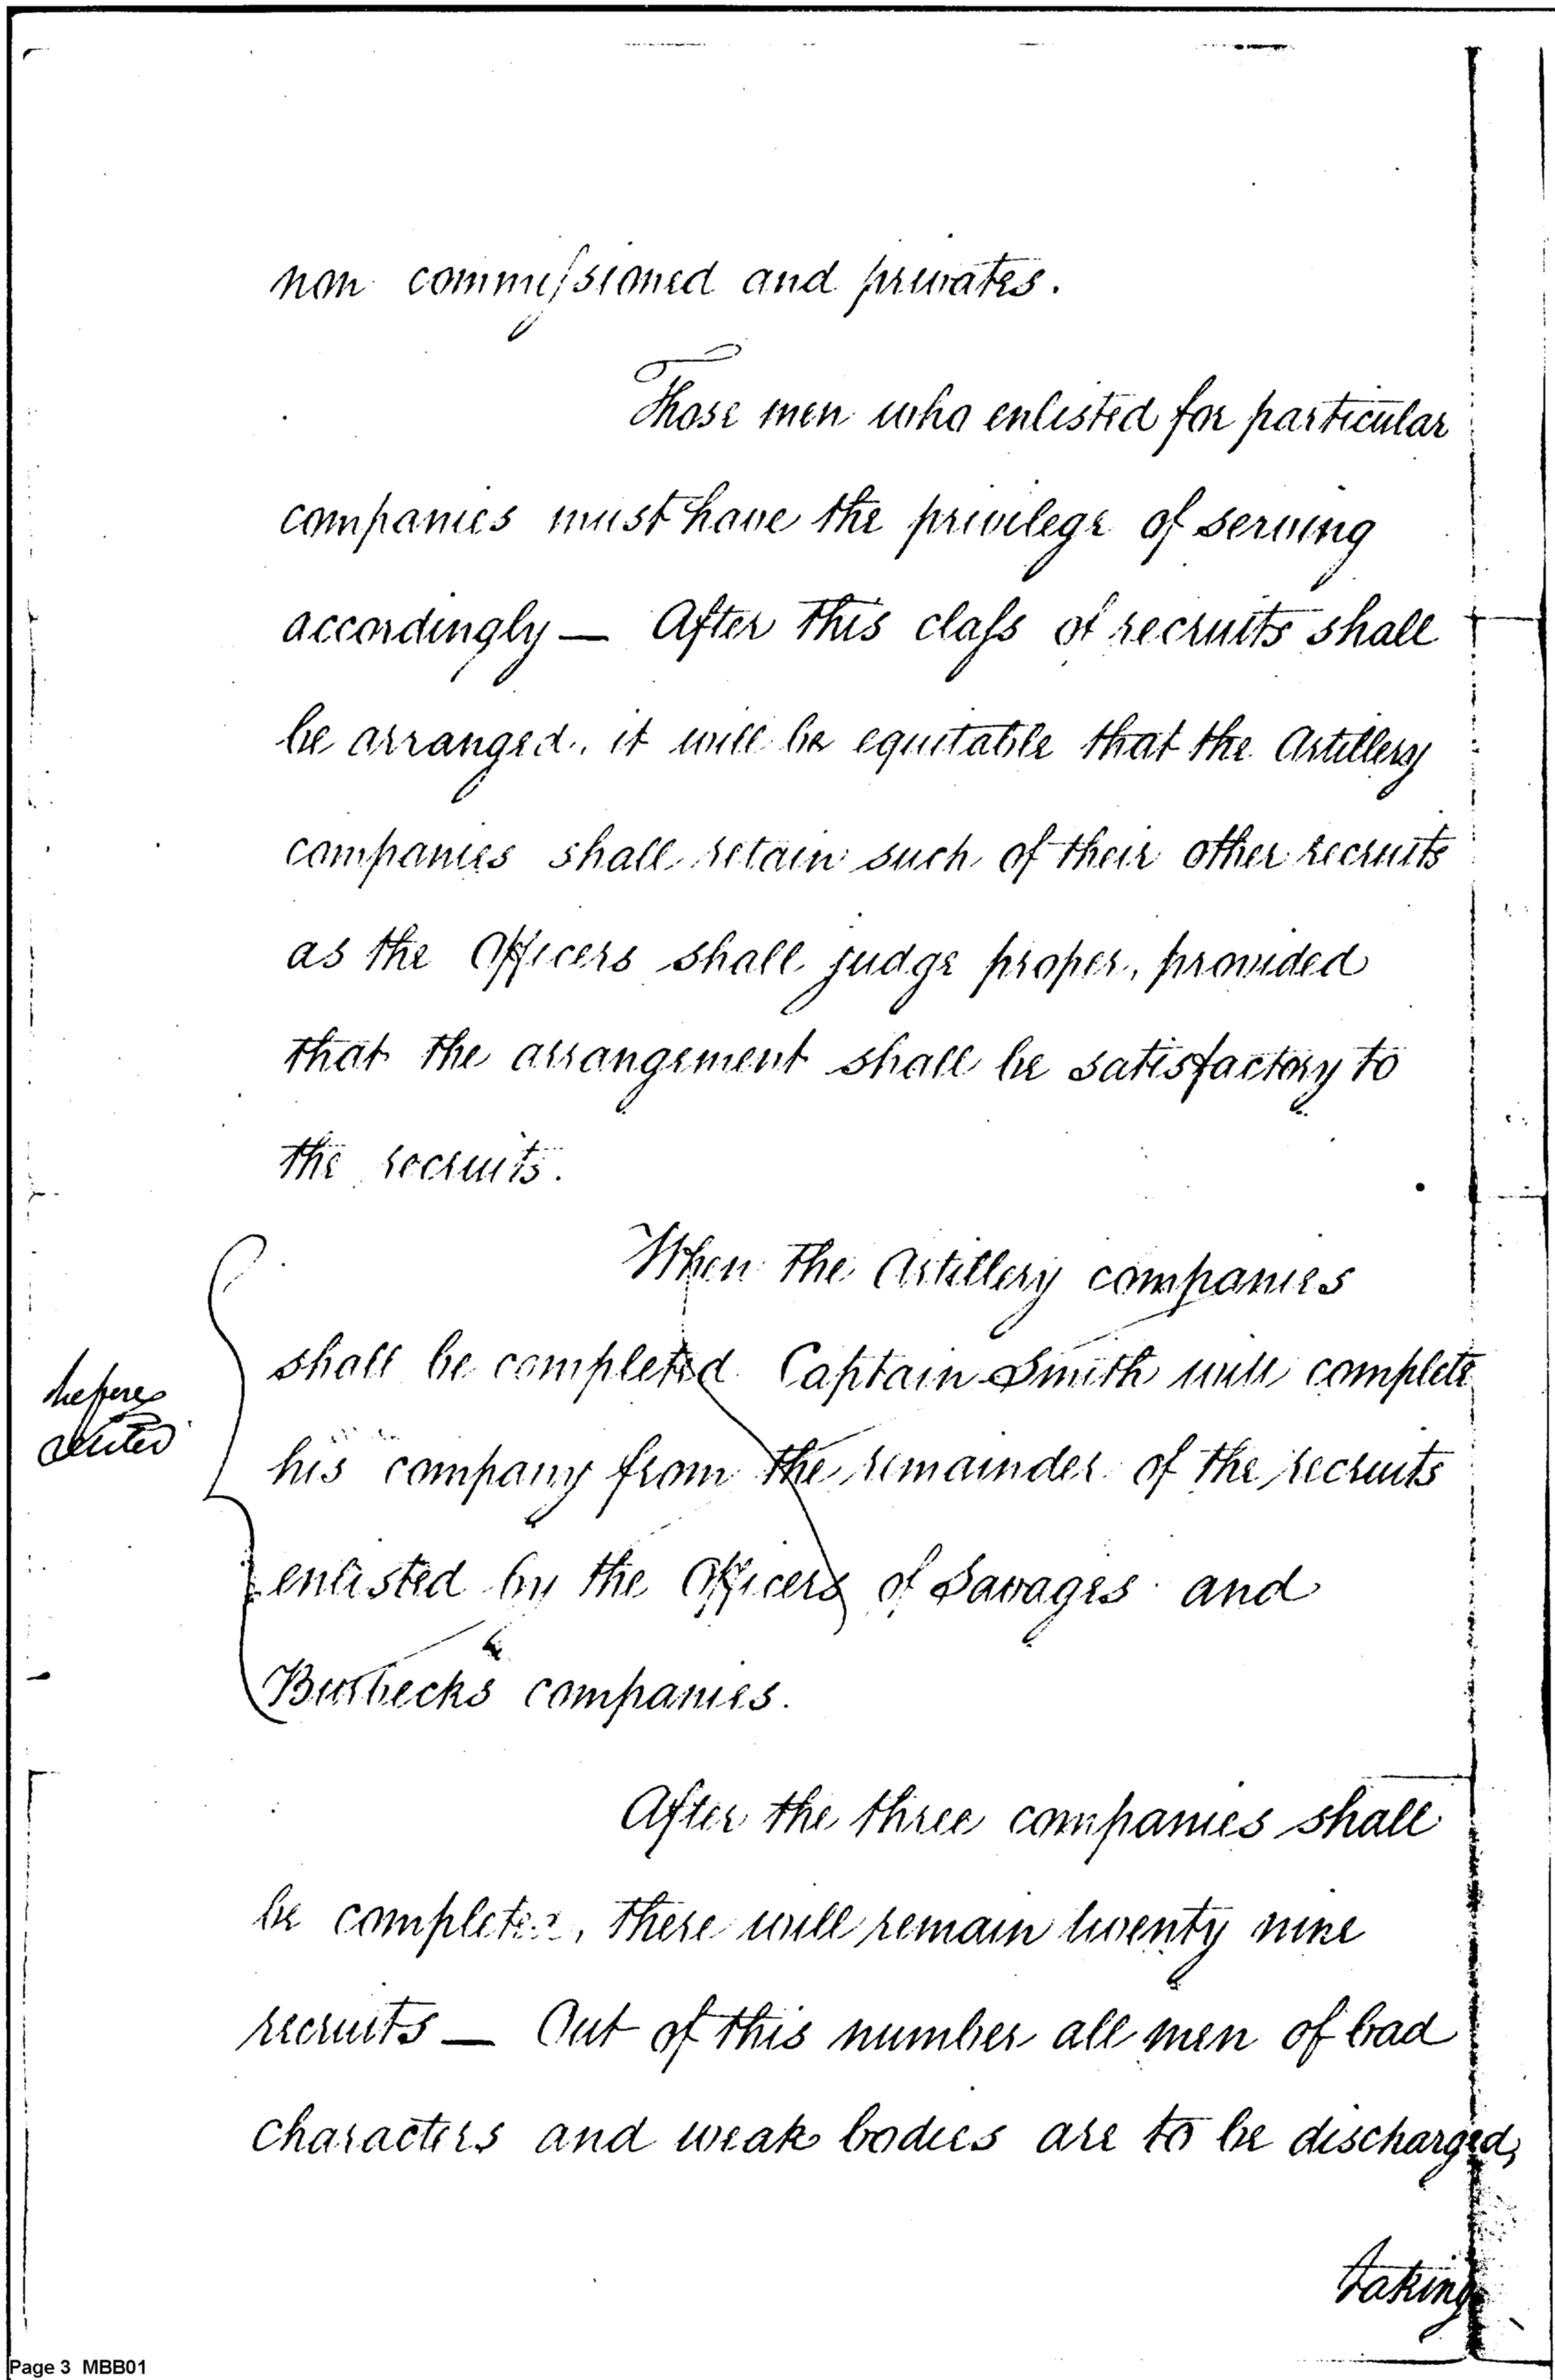 non commissioned and privates.
Those men who enlisted for particular
companies must have the privilege of serving
accordingly — After this class of recruits shall
be arranged, it will be equitable that the Artillery
companies shall retain such of their other recruits
as the Officers shall judge proper, provided
that the arrangement shall be satisfactory to
the recruits.
When the Artillery companies
shall be completed Captain Smith will complete
before
his company from the remainder of the recruits
enlisted by the Officers of Savages and
Burbecks companies.
After the three companies shall
be completed, there will remain twenty nine
recruits — Out of this number all men of bad
characters and weak bodies are to be discharged,
taking
Page 3 MBB01